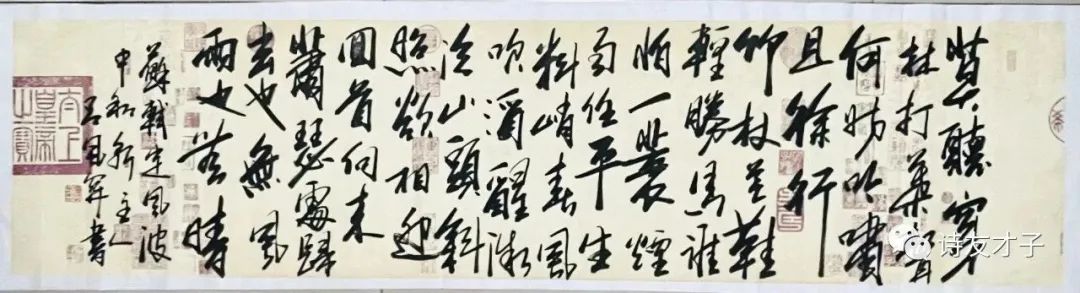 莫聽穿
林打葉聲
何妨吟嘯
且徐行
竹杖芒鞋
輕勝馬誰
怕一蓑煙
雨任平生
料峭春風
吹酒醒微
冷山頭斜
照欲相迎
回首向來
蕭瑟處歸
去也無風
雨也无晴
蘇軾定風波
主人
軍書
太上
皇帝
之寶
诗友才子